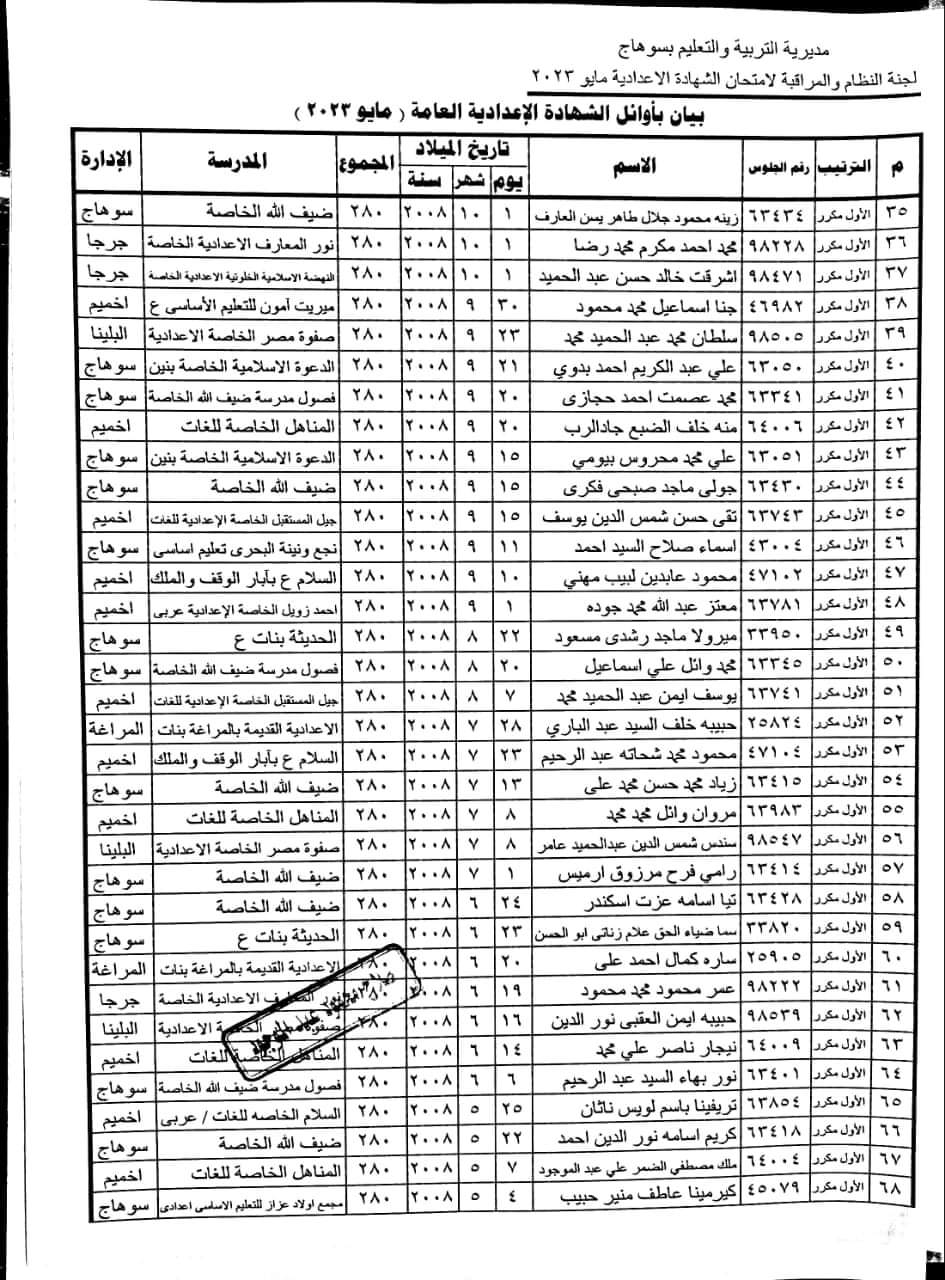 مديرية التربية والتعليم بسوهاج
لجنة النظام والمراقبة لامتحان الشهادة الاعدادية مايو ٢٠٢٣
بيان بأوائل الشهادة الإعدادية العامة ( مايو ٢٠٢٣ )
م الترتيب رقم الجلوس الاسم تاريخ الميلاد المجموع المدرسة الإدارة
يوم شهر سنة
٣٥ الأول مكرر ٦٣٤٣٤ زينه محمود جلال طاهر يسن العارف ١ ١٠ ٢٠٠٨ ٢٨٠ ضيف الله الخاصة سوهاج
٣٦ الأول مكرر ٩٨٢٢٨ محمد احمد مكرم محمد رضا ١ ١٠ ٢٠٠٨ ٢٨٠ نور المعارف الاعدادية الخاصة جرجا
٣٧ الأول مكرر ٩٨٤٧١ اشرقت خالد حسن عبد الحميد ١ ١٠ ٢٠٠٨ ٢٨٠ النهضة الاسلامية الخلوتية الاعدادية الخاصة جرجا
٣٨ الأول مكرر ٤٦٩٨٢ جنا اسماعيل محمد محمود ٣٠ ٩ ٢٠٠٨ ٢٨٠ ميريت آمون للتعليم الأساسى ع اخميم
٣٩ الأول مكرر ٩٨٥٠٥ سلطان محمد عبد الحميد محمد ٢٣ ٩ ٢٠٠٨ ٢٨٠ صفوة مصر الخاصة الاعدادية البلينا
٤٠ الأول مكرر ٦٣٠٥٠ علي عبد الكريم احمد بدوي ٢١ ٩ ٢٠٠٨ ٢٨٠ الدعوة الاسلامية الخاصة بنين سوهاج
٤١ الأول مكرر ٦٣٣٤١ محمد عصمت احمد حجازى ٢٠ ٩ ٢٠٠٨ ٢٨٠ فصول مدرسة ضيف الله الخاصة سوهاج
٤٢ الأول مكرر ٦٤٠٠٦ منه خلف الضبع جادالرب ٢٠ ٩ ٢٠٠٨ ٢٨٠ المناهل الخاصة للغات اخميم
٤٣ الأول مكرر ٦٣٠٥١ علي محمد محروس بيومي ١٥ ٩ ٢٠٠٨ ٢٨٠ الدعوة الاسلامية الخاصة بنين سوهاج
٤٤ الأول مكرر ٦٣٤٣٠ جولى ماجد صبحى فكرى ١٥ ٩ ٢٠٠٨ ٢٨٠ ضيف الله الخاصة سوهاج
٤٥ الأول مكرر ٦٣٧٤٣ تقى حسن شمس الدين يوسف ١٥ ٩ ٢٠٠٨ ٢٨٠ جيل المستقبل الخاصة الإعدادية للغات اخميم
٤٦ الأول مكرر ٤٣٠٠٤ اسماء صلاح السيد احمد ١١ ٩ ٢٠٠٨ ٢٨٠ نجع ونينة البحرى تعليم اساسى سوهاج
٤٧ الأول مكرر ٤٧١٠٢ محمود عابدين لبيب مهني ١٠ ٩ ٢٠٠٨ ٢٨٠ السلام ع بآبار الوقف والملك اخميم
٤٨ الأول مكرر ٦٣٧٨١ معتز عبد الله محمد جوده ١ ٩ ٢٠٠٨ ٢٨٠ احمد زويل الخاصة الإعدادية عربى اخميم
٤٩ الأول مكرر ٣٣٩٥٠ ميرولا ماجد رشدى مسعود ٢٢ ٨ ٢٠٠٨ ٢٨٠ الحديثة بنات ع سوهاج
٥٠ الأول مكرر ٦٣٣٤٥ محمد وائل علي اسماعيل ٢٠ ٨ ٢٠٠٨ ٢٨٠ فصول مدرسة ضيف الله الخاصة سوهاج
٥١ الأول مكرر ٦٣٧٤١ يوسف ايمن عبد الحميد محمد ٧ ٨ ٢٠٠٨ ٢٨٠ جيل المستقبل الخاصة الإعدادية للغات اخميم
٥٢ الأول مكرر ٢٥٨٢٤ حبيبه خلف السيد عبد الباري ٢٨ ٧ ٢٠٠٨ ٢٨٠ الاعدادية القديمة بالمراغة بنات المراغة
٥٣ الأول مكرر ٤٧١٠٤ محمود محمد شحاته عبد الرحيم ٢٣ ٧ ٢٠٠٨ ٢٨٠ السلام ع بآبار الوقف والملك اخميم
٥٤ الأول مكرر ٦٣٤١٥ زياد محمد حسن محمد على ١٣ ٧ ٢٠٠٨ ٢٨٠ ضيف الله الخاصة سوهاج
٥٥ الأول مكرر ٦٣٩٨٣ مروان وائل محمد محمد ٨ ٧ ٢٠٠٨ ٢٨٠ المناهل الخاصة للغات اخميم
٥٦ الأول مكرر ٩٨٥٤٧ سندس شمس الدين عبدالحميد عامر ٨ ٧ ٢٠٠٨ ٢٨٠ صفوة مصر الخاصة الاعدادية البلينا
٥٧ الأول مكرر ٦٣٤١٤ رامي فرح مرزوق ارميس ١ ٧ ٢٠٠٨ ٢٨٠ ضيف الله الخاصة سوهاج
٥٨ الأول مكرر ٦٣٤٢٨ تيا اسامه عزت اسكندر ٢٤ ٦ ٢٠٠٨ ٢٨٠ ضيف الله الخاصة سوهاج
٥٩ الأول مكرر ٣٣٨٢٠ سما ضياء الحق علام زناتى ابو الحسن ٢٣ ٦ ٢٠٠٨ ٢٨٠ الحديثة بنات ع سوهاج
٦٠ الأول مكرر ٢٥٩٠٥ ساره كمال احمد على ٢٠ ٦ ٢٠٠٨ ٢٨٠ الاعدادية القديمة بالمراغة بنات المراغة
٦١ الأول مكرر ٩٨٢٢٢ عمر محمود محمد محمود ١٩ ٦ ٢٠٠٨ ٢٨٠ نور المعارف الاعدادية الخاصة جرجا
٦٢ الأول مكرر ٩٨٥٣٩ حبيبه ايمن العقبى نور الدين ١٦ ٦ ٢٠٠٨ ٢٨٠ صفوة مصر الخاصة الاعدادية البلينا
٦٣ الأول مكرر ٦٤٠٠٩ نيجار ناصر علي محمد ١٤ ٦ ٢٠٠٨ ٢٨٠ المناهل الخاصة للغات اخميم
٦٤ الأول مكرر ٦٣٤٠١ نور بهاء السيد عبد الرحيم ٦ ٦ ٢٠٠٨ ٢٨٠ فصول مدرسة ضيف الله الخاصة سوهاج
٦٥ الأول مكرر ٦٣٨٥٤ تريفينا باسم لويس ناثان ٢٥ ٥ ٢٠٠٨ ٢٨٠ السلام الخاصه للغات / عربى اخميم
٦٦ الأول مكرر ٦٣٤١٨ كريم اسامه نور الدين احمد ٢٢ ٥ ٢٠٠٨ ٢٨٠ ضيف الله الخاصة سوهاج
٦٧ الأول مكرر ٦٤٠٠٤ ملك مصطفي الضمر علي عبد الموجود ٧ ٥ ٢٠٠٨ ٢٨٠ المناهل الخاصة للغات اخميم
٦٨ الأول مكرر ٤٥٠٧٩ كيرمينا عاطف منير حبيب ٤ ٥ ٢٠٠٨ ٢٨٠ مجمع اولاد عزاز للتعليم الاساسى اعدادى سوهاج